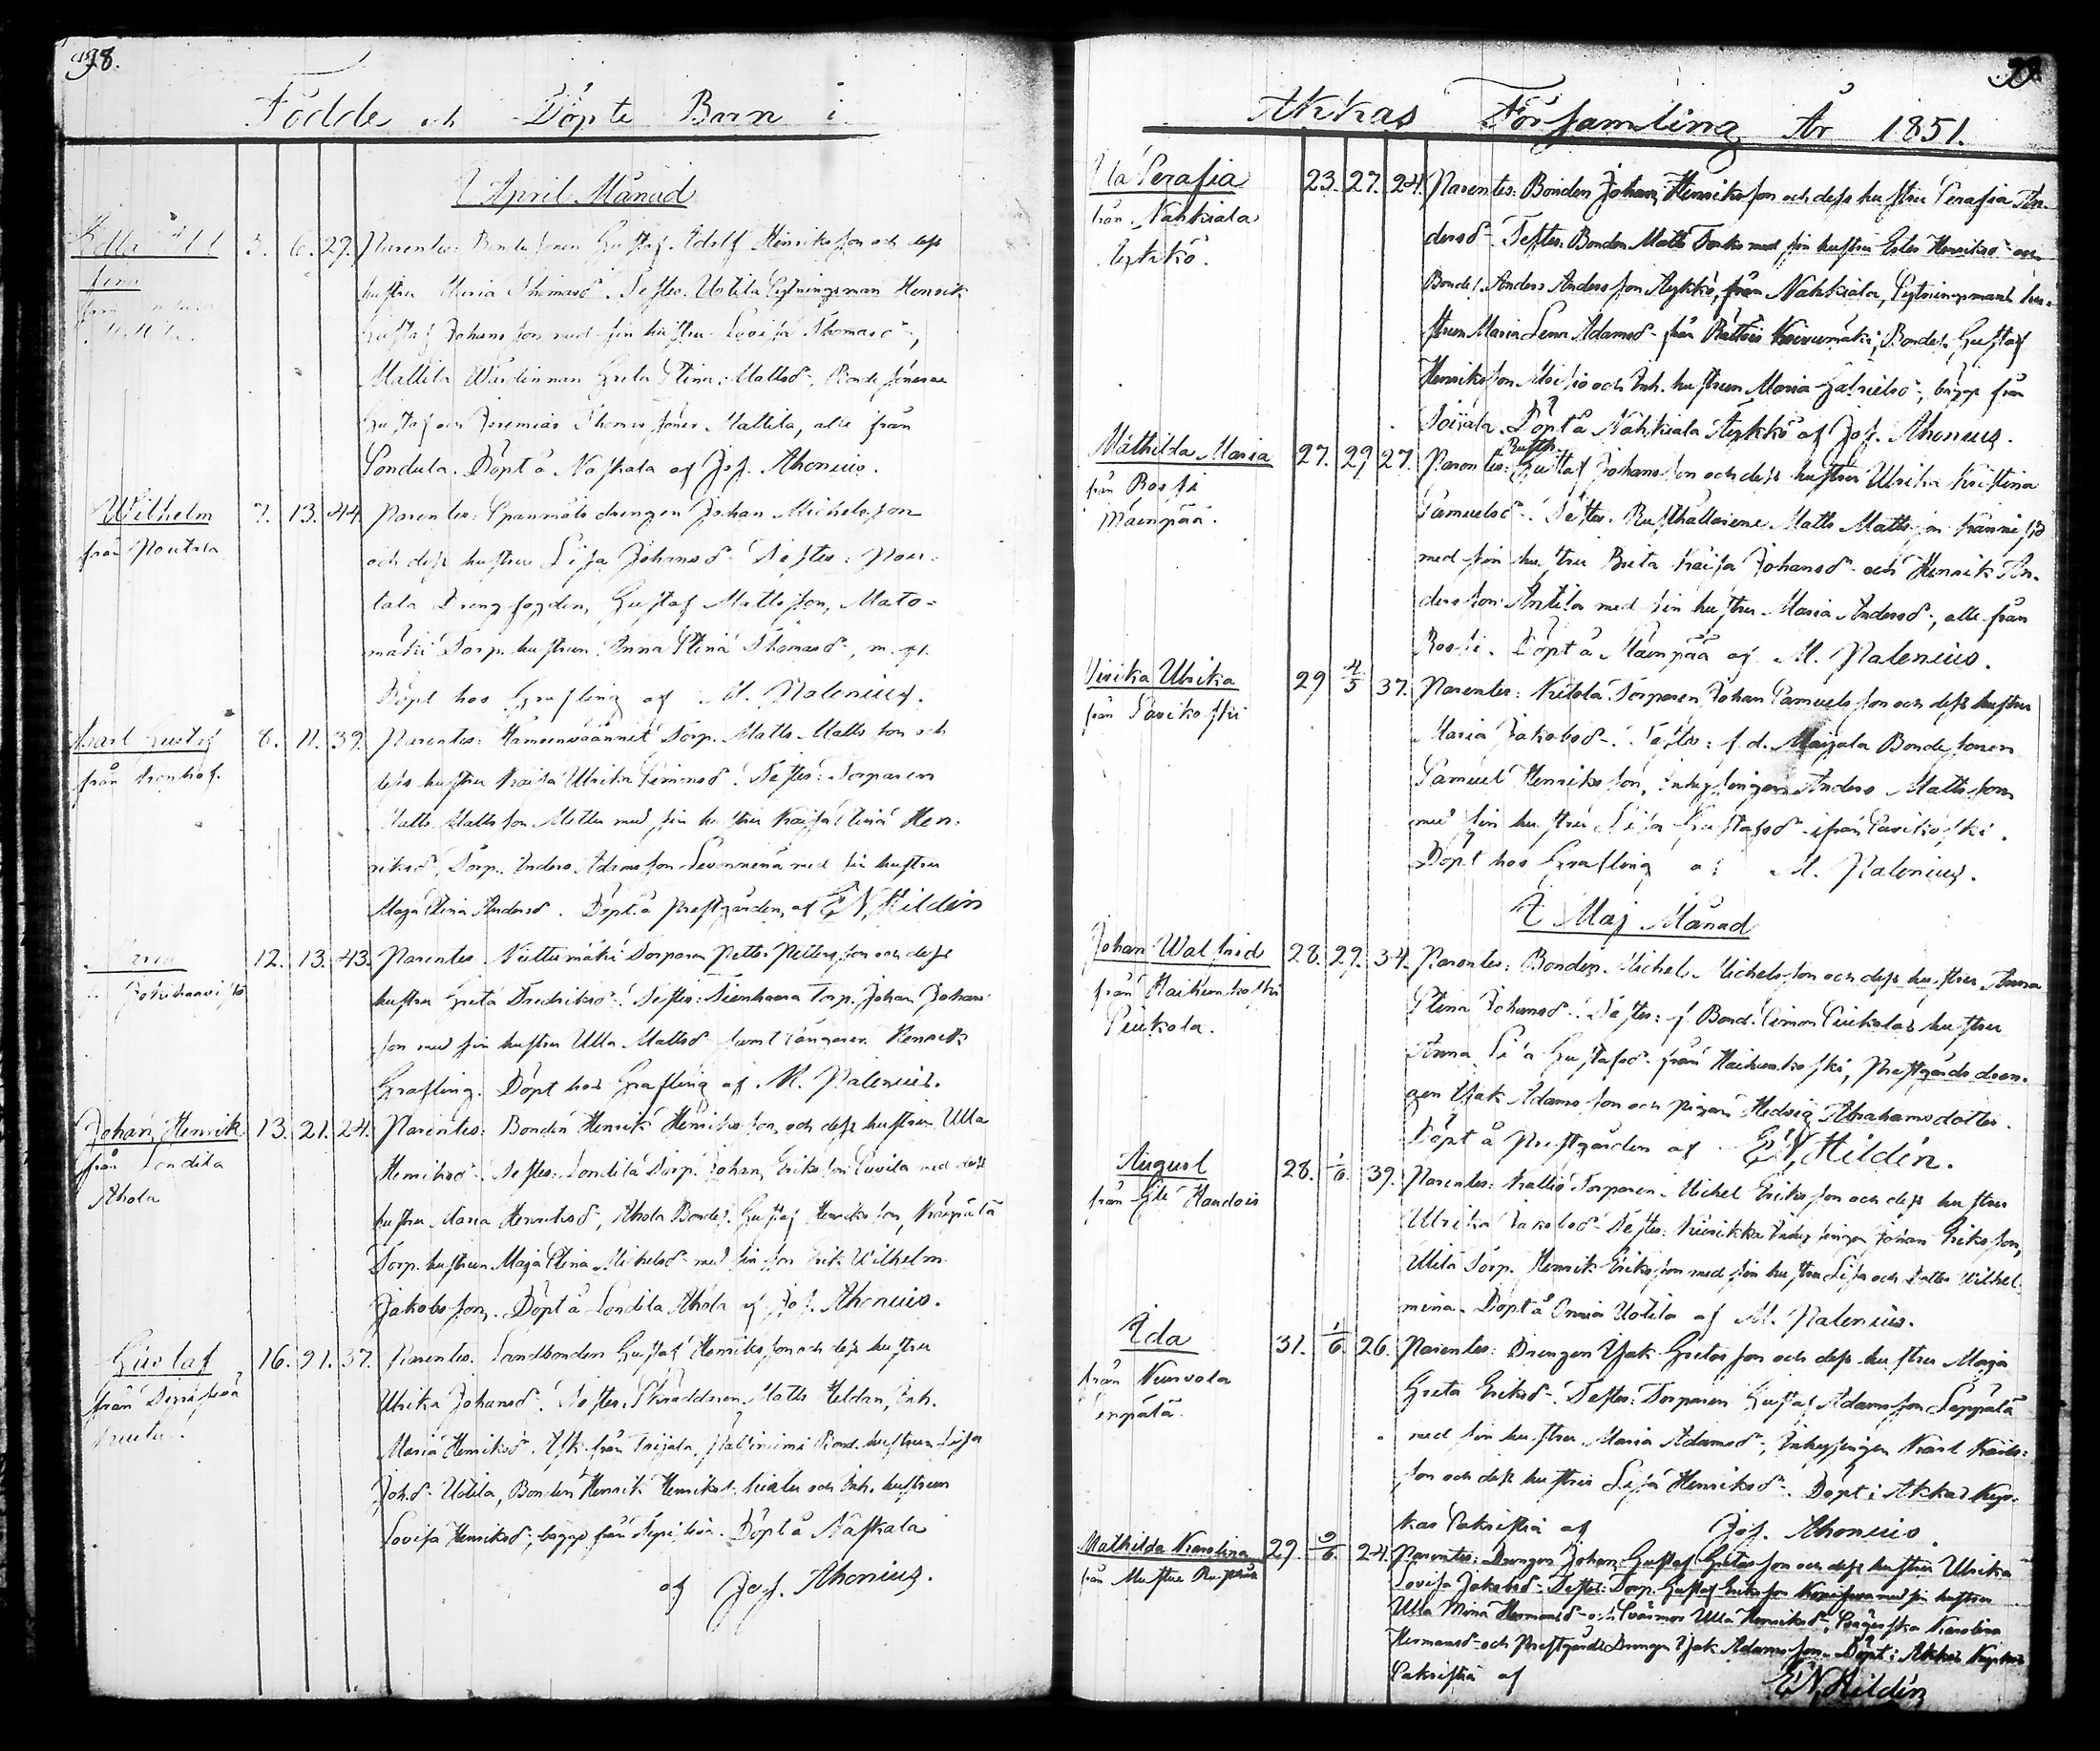 98.
Födde och Döpte Barn i
I April Månad
3. 6. 29. Parentes: Bondesonen Gustaf Adolf Henriksson och dess
hustru Maria Thomasd:. Testes: Uotila Sextningsman Henrik
Gustaf Johansson med sin hustru Lovisa Thomasd:,
Mattila Wärdinnan Greta Stina Mattsd:, Bondesönerne
Gustaf och Jeremias Thomassöner Mattila, alle från
Sondula. Döpt å Naskala af Jos. Ahonius.
Wilhelm 7. 13. 44. Parentes: Spannmåls drengen Johan Michelsson
från Nontala och dess hustru Lisa Johansd: Testes: Non-
tala Drengfogden, Gustaf Mattsson, Mato-
mäki Torp. hustrun Anna Stina Thomasd:, m. fl.
Döpt hos Grafling af M. Palenius.
Karl Gustaf 8. 11. 39. Parentes: Torp. Matts Mattsson och
från Kronhof. dess hustru Kaisa Ulrika Simonsd: Testes: Torparen
Matts Mattsson med sin hustru Kaisa Stina Hen-
riksd:, Torp. Anders Adamsson med sin hustru
Maja Stina Andersd:. Döpt å Prestgården, af E. N. Hildén
Maria 12. 13. 43. Parentes: Niittumäki Torparen Petter Pettersson och dess
hustru Greta Fredriksd:. Testes: Torp. Johan Johans-
son med sin hustru Ulla Mattsd: samt Henrik
Grafling. Döpt hos Grafling af M. Palenius.
Johan Henrik 13. 21. 24. Parentes: Bonden Henrik Henriksson och dess hustru Ulla
från Sondila Henriksd:. Testes: Sondila Torp. Johan Eriksson med dess
Ahola hustru Maria Henriksd:, Ahola Bondes. Gustaf Henriksson,
Torp. hustrun Maja Stina Michelsd: med sin son Erik Wilhelm
Jakobsson. Döpt å Sondila Ahola af Jos. Ahonius.
Gustaf 16. 21. 37. Parentes: Landbonden Gustaf Henriksson och dess hustru
från Ulrika Johansd:. Testes: Skräddaren Matts Heldan, Inh.
Maria Henriksd: från Toijala, Bond. hustrun Lisa
Joh.d: Uotila, Bonden Henrik Henrikss. och Inh. hustrun
Lovisa Henriksd:, bägge från. Döpt å Naskala
af Jos. Ahonius.
99.
Akkas Församling År 1851.
Ulla Serafia 23. 27. 24. Parentes: Bonden Johan Henriksson och dess hustru Serafia An-
från Nahkiala dersd: Testes: Bonden Matts med sin hustru Ester Henriksd: och
Äykkö. Bondes. Anders Andersson Äykkö, från Nahkiala, Sextningsmans hu-
strun Maria Lena Adamsd: från Koivumäki, Bondes. Gustaf
Henriksson och Inh. hustrun Maria Gabrielsd:, bägge från
Toijala. Döpt å Nahkiala Äykkö af Jos. Ahonius.
Mathilda Maria 27. 29. 27. Parentes: Rusth. Gustaf Johansson och dess hustru Ulrika Kristina
från Rossi Samuelsd:. Testes: Rusthållarene Matts Mattsson
Mäenpää. med sin hustru Brita Kaisa Johansd: och Henrik An-
dersson Antila med sin hustru Maria Andersd:, alle från
Rossi. Döpt å Mäenpää af M. Palenius.
Ulrika 29 4/5 37. Parentes: Torparen Johan Samuelsson och dess hustru
från Savikoski Maria Jakobsd:. Testes: f.d. Maijala Bondesonen
Samuel Henriksson, Inhysingen Anders Mattsson
med sin hustru Lisa Gustafsd: ifrån Savikoski.
Döpt hos Grafling af M. Palenius.
I Maj Månad
Johan Walfrid 28. 29. 34. Parentes: Bonden Michel Michelsson och dess hustru Anna
från Haihunkoski Stina Johansd:. Testes: f. Bond. Simon Piukolas hustru
Piukola. Anna Lisa Gustafsd: från Haihunkoski, Prestgårds dren-
gen Isak Adamsson och pigan Hedvig Abrahamsdotter.
Döpt å Prestgården af E. N. Hildén.
August 28. 1/6. 39. Parentes: Kallio Torparen Michel Eriksson och dess hustru
Ulrika Jakobsd: Testes: Inhysingen Johan Eriksson,
Torp. Henrik Eriksson med sin hustru Lisa och Dotter Wilhel-
mina. Döpt å Uotila af M. Palenius.
Ida 31. 1/6. 26. Parentes: Drengen Isak Gretasson och dess hustru Maja
från Greta Eriksd:. Testes: Torparen Gustaf Adamsson Seppälä
med sin hustru Maria Adamsd:, Inhysingen Karl Karls-
son och dess hustru Lisa Henriksd:. Döpt i Akkas Kyr-
kas Sakristia af Jos. Ahonius.
Mathilda Karolina 29. 9/6. 24. Parentes: Drengen Johan Gustaf Gretasson och dess hustru Ulrika
Lovisa Jakobsd: Testes: Torp. Gustaf Eriksson med sin hustru
Ulla Mina Hermansd: och Svärmor Ulla Henriksd:, Karolina
Hermansd: och Prestgårds Drengen Isak Adamsson. Döpt i Akkas Kyrkas
Sakristia af E. N. Hildén